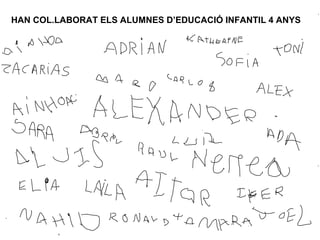 HAN COL.LABORAT ELS ALUMNES D'EDUCACIÓ INFANTIL 4 ANYS
ADRIAN
TONI
SOFIA
ZACARIAS
MARO
CARLOS
ALEX
AINHOA
ALEXANDER
SARA
LLUIZ
ADA
ALUIS
RAUL
Nerea
ELPA
LAILA
AITOR
IKER
NAHID
RONALD
TAMARA
JOEL